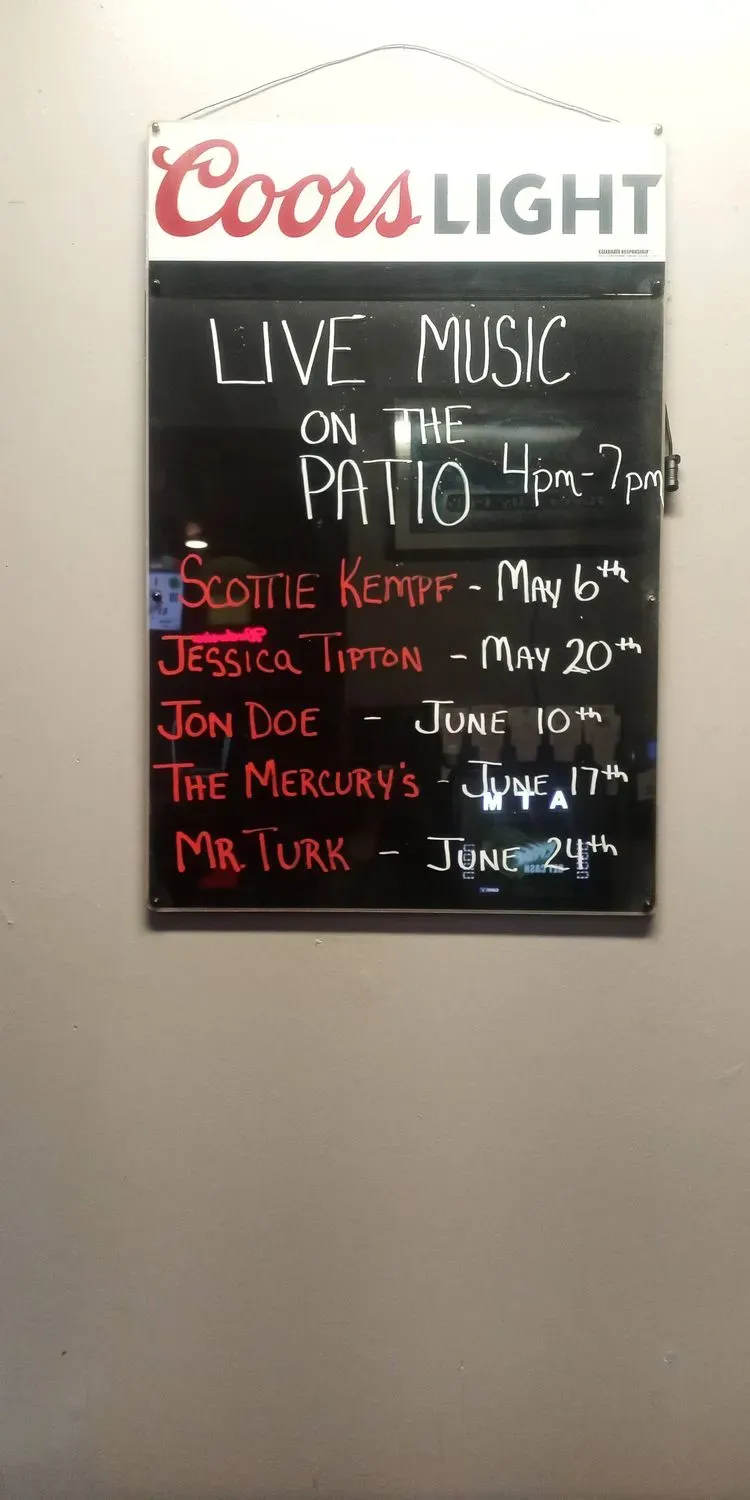 Coors LIGHT
CELEBRATE RESPONSIBLY
LIVE MUSIC
ON THE
PATIO 4pm-7pm
SCOTTIE KEMPF - MAY 6th
JESSICA TIPTON - MAY 20th
JON DOE - JUNE 10th
THE MERCURY'S - JUNE 17th
M T A
MR. TURK - JUNE 24th